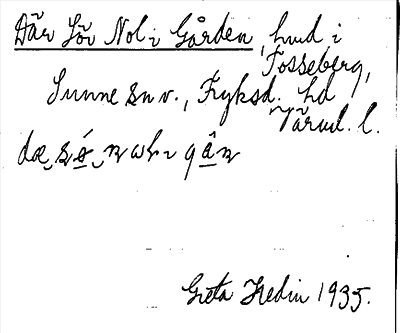 Där Sör Nol i Gården, hmd i
Fosseberg,
Sunne sn v., Fryksd. hd
Värml. l.
Greta Hedin 1935.